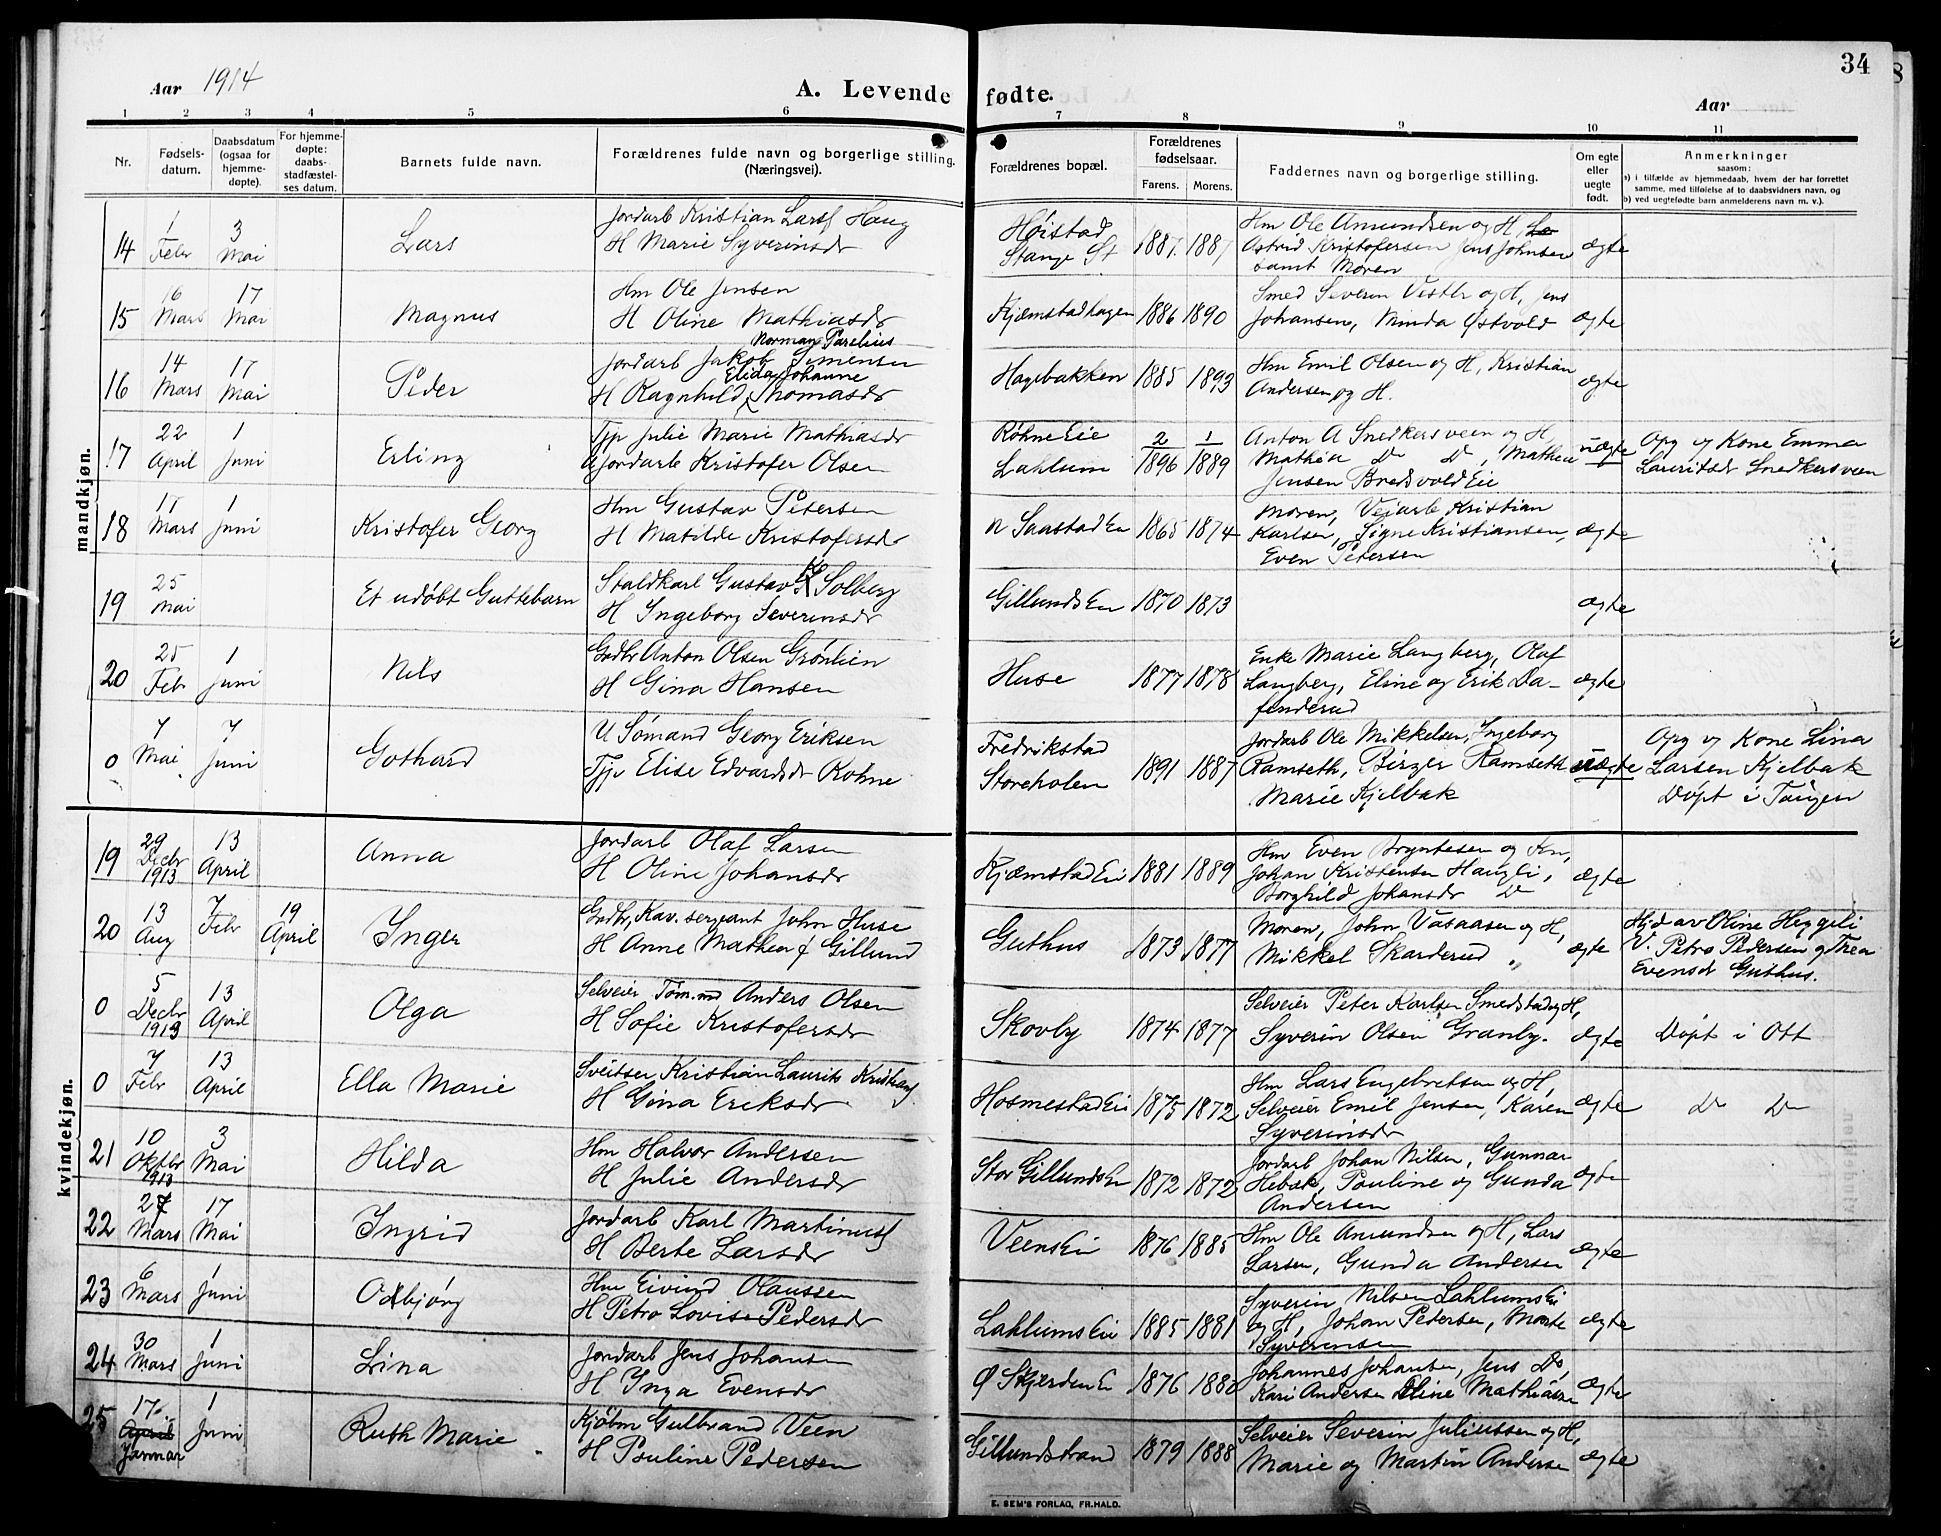 34
Aar 1914
A. Levende fødte.
Aar
1 2 3 4 5 6 7 8 9 10 11
Nr.
Fødsels-
datum.
Daabsdatum
(ogsaa for
hjemme-
døpte).
For hjemme-
døpte:
daabs-
stadfæstel-
ses datum.
Barnets fulde navn.
Forældrenes fulde navn og borgerlige stilling.
(Næringsvei).
Forældrenes bopæl.
Forældrenes
fødselsaar.
Farens. Morens.
Faddernes navn og borgerlige stilling.
Om egte
eller
uegte
født.
Anmerkninger
saasom:
a) i tilfælde av hjemmedaab, hvem der har forrettet
samme, med tilføielse af to daabsvidners navn, og
b) ved uegtefødte barn anmelderens navn m. v.).
mandkjøn.
14
1
Febr
3
Mai
Lars
Jordarb Kristian Lars Haug
H Marie Syverinsdr
Høistad
Stange St
1887. 1887
Hm Ole Amundsen og H,
Astrid Kristofersen Jens Johnsen
samt Moren
ægte
15
16
Mars
17
Mai
Magnus
Hm Ole Jensen
H Oline Mathiasdr
Kjæmstadhagen
1886 1890
Smed Severin Vestbr og H, Jens
Johansen, Minda Østvold
ægte
16
14
Mars
17
Mai
Peder
Norman Parelius
Jordarb Jakob Simensen
Elida Johanne
H Ragnhild Thomasdr
Hagebakken
1885 1893
Hm Emil Olsen og H, Kristian
Andersen og H.
ægte
17
22
April
1
Juni
Erling
Tjp Julie Marie Mathiasdr
Gjordarb Kristofer Olsen
Røhne Eie
Lahlum
2/1896 1/1889
Anton A Snedkersveen og H,
Mathea Do Do, Mathea
Jensen Bredvold Eie
uægte
Opg v Kone Emma
Lauritsdr Snedkersveen
18
17
Mars
1
Juni
Kristofer Georg
Hm Gustav Petersen
H Matilde Kristofersdr
N Saastad Ei
1865 1874
Moren, Vejarb Kristian
Karlsen, Signe Kristiansen,
Even Petersen
ægte
19
25
Mai
Et udøbt Guttebarn
Staldkarl Gustav Solberg
H Ingeborg Severinsdr
Gillunds Ei
1870 1873
ægte
20
25
Febr
1
Juni
Nils
Gdbr Anton Olsen Grønlien
H Gina Hansen
Huse
1877 1878
Enke Marie Langberg, Olaf
Langberg, Eline og Erik Da-
fenderud
ægte
0
7
Mai
7
Juni
Gothard
U Sømand Georg Eriksen
Tjp Elise Edvardsdr Rohne
Fredrikstad
Storeholen
1891 1887
Jordarb Ole Mikkelsen, Ingeborg
Ramseth, Birger Ramseth
Marie Kjelbak
uægte
Opg v Kone Lina
Larsen Kjelbak
Døpt i Tangen
kvindekjøn.
19
29
Decbr
1913
13
April
Anna
Jordarb Olaf Larsen
H Oline Johansdr
Kjæmstad Ei
1881 1889
Hm Even Bryntesen og Kn,
Johan Kristensen Haugli,
Borghild Johansdr Do
ægte
20
13
Aug
7
Febr
19
April
Inger
Gdbr, Kav. sergeant John Huse
H Anne Mathea f Gillund
Guthus
1873 1877
Moren, John Vasaasen og H,
Mikkel Skarderud "
ægte
Hjd av Oline Heggeli
V. Petro Pedersen og Thea
Evensdr Guthus.
0
5
Decbr
1913
13
April
Olga
Selveier Tøm.md Anders Olsen
H Sofie Kristofersdr
Skovby
1874 1877
Selveier Peter Karlsen Smedstad og H,
Syverin Olsen Granby.
ægte
Døpt i Ott
0
7
Febr
13
April
Ella Marie
Sveitser Kristian Laurits Kristians
H Gina Eriksdr
Hosmestad Ei
1875 1872
Hm Lars Engebretsen og H,
Selveier Emil Jensen, Karen
Syverinsdr
ægte
Do Do
21
10
Oktbr
1913
3
Mai
Hilda
Hm Halvor Andersen
H Julie Andersdr
Stor Gillunds Ei
1872 1872
Jordarb Johan Nilsen, Gunnar
Hebæk, Pauline og Gunda
Andersen
ægte
22
27
Mars
17
Mai
Ingrid
Jordarb Karl Martinus
H Berte Larsdr
Veens Ei
1876 1885
Hm Ole Amundsen og H, Lars
Larsen, Gunda Andersen
ægte
23
6
Mars
1
Juni
Oddbjörg
Hm Eivind Olaussen
H Petro Lovise Pedersdr
Lahlums Ei
1885 1881
Syverin Nilsen Lahlums Ei
og H, Johan Pedersen, Marte
Syverinsen
ægte
24
30
Mars
1
Juni
Lina
Jordarb Jens Johansen
H Inga Evensdr
Ø Skjerden Ei
1876 1888
Johannes Johansen, Jens Do,
Kari Andersen Eline Mathiasen
ægte
25
17
April
Januar
1
Juni
Ruth Marie
Kjøbm Gulbrand Veen
H Pauline Pedersen
Gillundstrand
1879 1888
Selveier Severin Juliussen og H,
Marie og Martin Andersen
ægte
E. SEM'S FORLAG, FR.HALD.